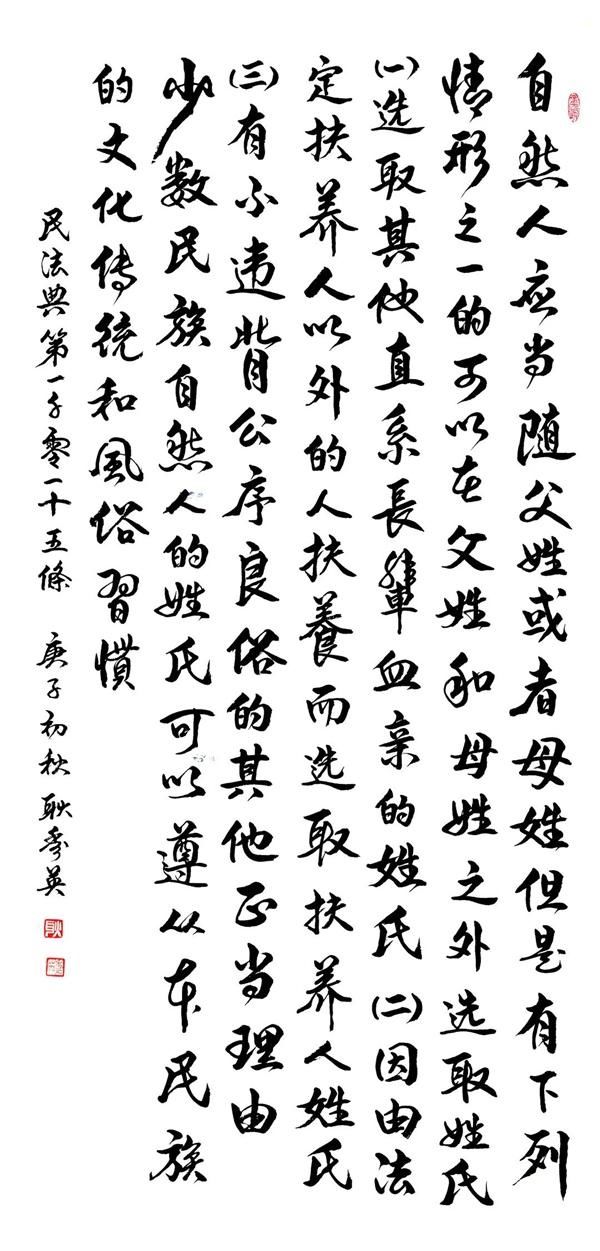 自然人应当随父姓或者母姓但是有下列
情形之一的可以在父姓和母姓之外选取姓氏
(一)选取其他直系長輩血亲的姓氏(二)因由法
定扶养人以外的人扶養而选取扶养人姓氏
(三)有不违背公序良俗的其他正当理由
少数民族自然人的姓氏可以遵从本民族
的文化传统和風俗習惯
民法典第一千零一十五條 庚子初秋 耿秀英
耿